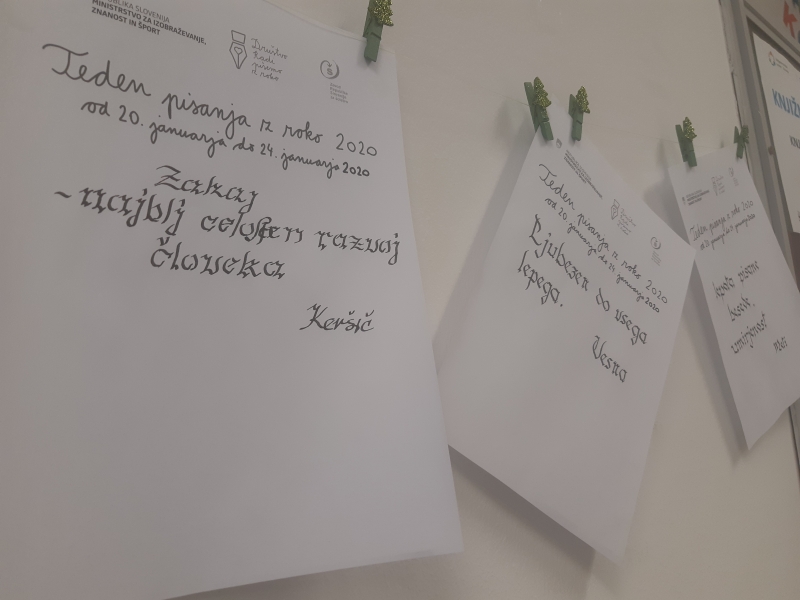 REPUBLIKA SLOVENIJA
MINISTRSTVO ZA IZOBRAŽEVANJE,
ZNANOST IN ŠPORT
Društvo
Radi
pišemo
z roko
Teden pisanja z roko 2020
od 20. januarja do 24. januarja 2020
Zakaj
- najblj celosten razvoj
človeka
Keršič
Teden pisanja z roko 2020
od 20. januarja do 24. januarja 2020
Ljubezen do vsega
lepega.
Vesna
Teden pisanja z roko 2020
od 20. januarja do 24. januarja 2020
lepota pisane
besede,
umirjenost
KNJIŽ